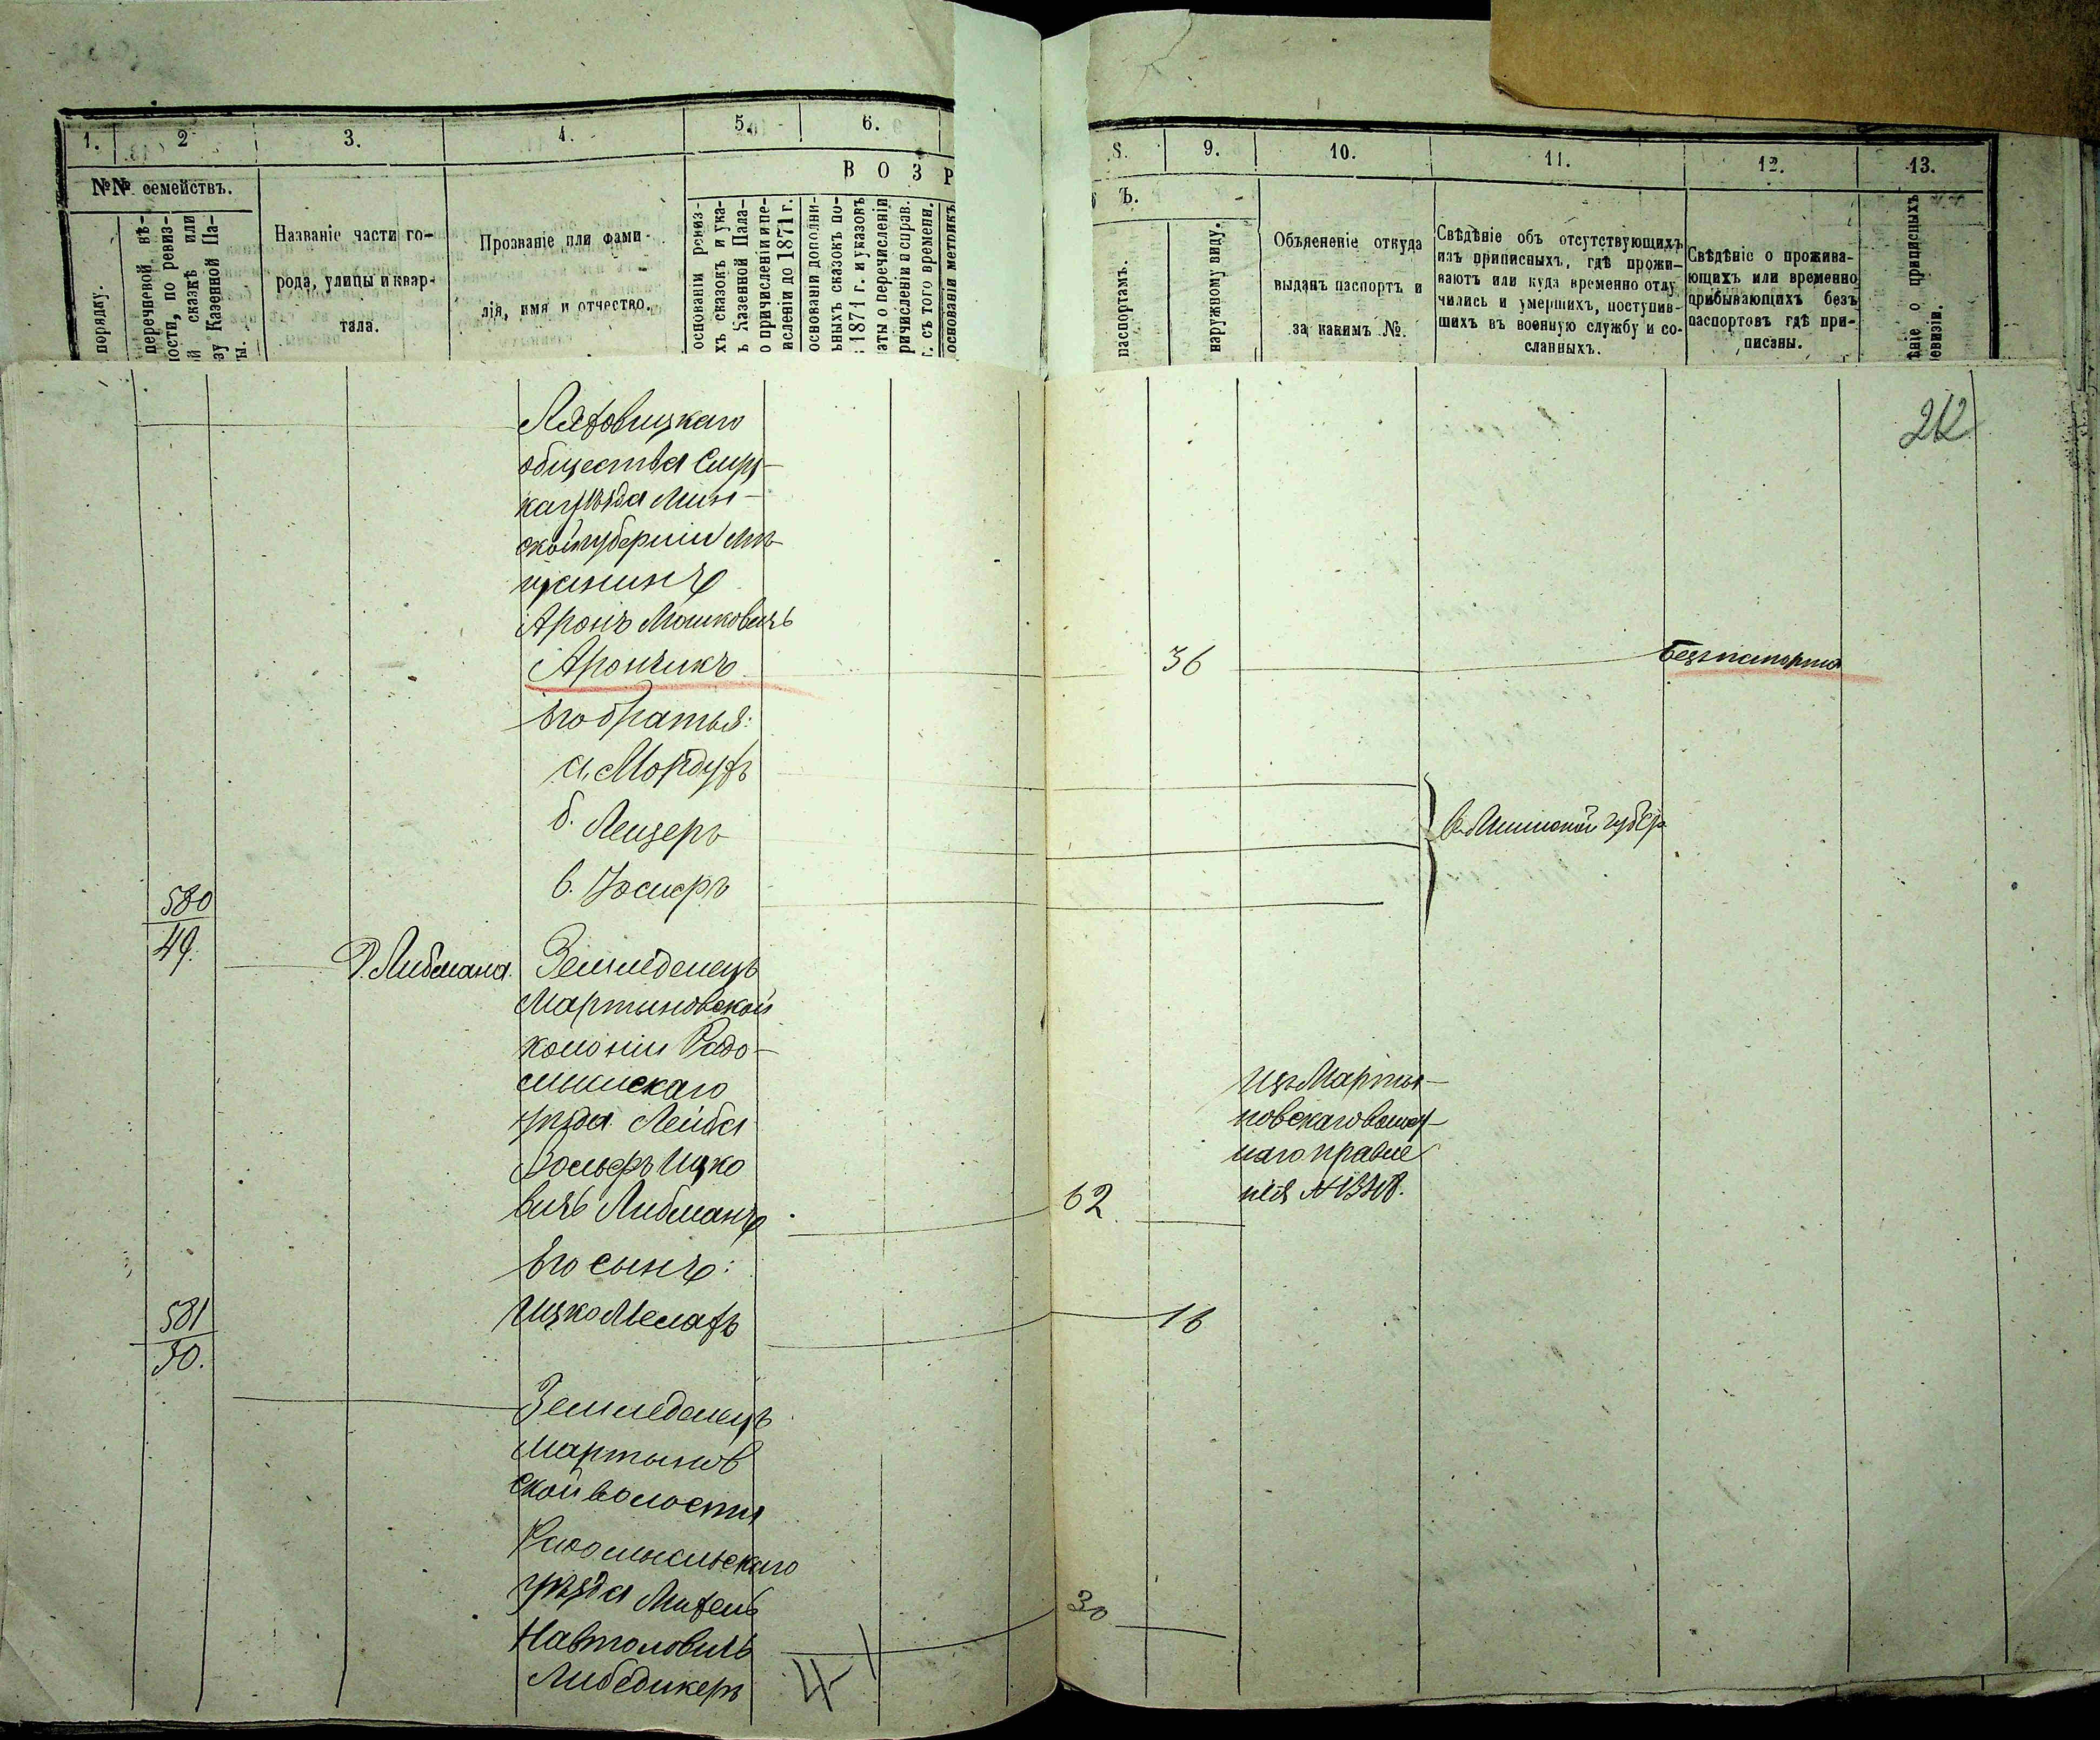 1.
2
3.
4.
5.
6.
№№ семействъ.
В О З Р
порядку.
перечневой вѣ-
ности, по ревиз-
й сказкѣ или
зу Казенной Па-
ты.
Названіе части го-
рода, улицы и квар-
тала.
Прозваніе или фами-
лія, имя и отчество.
основаніи ревиз-
хъ сказокъ и ука-
ъ Казенной Пала-
о причисленіи и пе-
исленіи до 1871 г.
основаніи дополни-
ьныхъ сказокъ по-
1871 г. и указовъ
аты о перечисленіи
ричисленіи и справ.
г. съ того времени.
основаніи метрикъ
8.
9.
10.
11.
12.
13.
Ъ.
паспортамъ.
наружному виду.
Объясненіе откуда
выданъ паспортъ и
за какимъ №.
Свѣдѣніе объ отсутствующихъ
изъ приписныхъ, гдѣ прожи-
ваютъ или куда временно отлу
чились и умершихъ, поступив-
шихъ въ военную службу и со-
сланныхъ.
Свѣдѣніе о прожива-
ющихъ или временно
прибывающихъ безъ
паспортовъ гдѣ при-
писаны.
ѣніе о приписныхъ
евизіи.
212
Ляховицкаго
общества Слуц-
ка уѣзда Мин-
ской губерніи мѣ-
щанинъ
Аронъ Мошковичъ
Арончикъ
36
Безъ паспорта
Его братья:
а. Мордухъ
б. Лейзеръ
в. Іосиеръ
въ Минской губер.
580
49.
Д. Либмана.
Земледелецъ
Мартыновской
колоніи Радо-
мысльскаго
уѣзда Лейба
Вольфъ Ицко
вичъ Либманъ
62
Изъ Марты-
новскаго волост-
наго правле
нія №
Его сынъ:
Ицко Мелахъ
16
581
50.
Земледелецъ
Мартынов
ской волости
Радомысльскаго
уѣзда Михель
Навтоловичъ
Либедикеръ
30